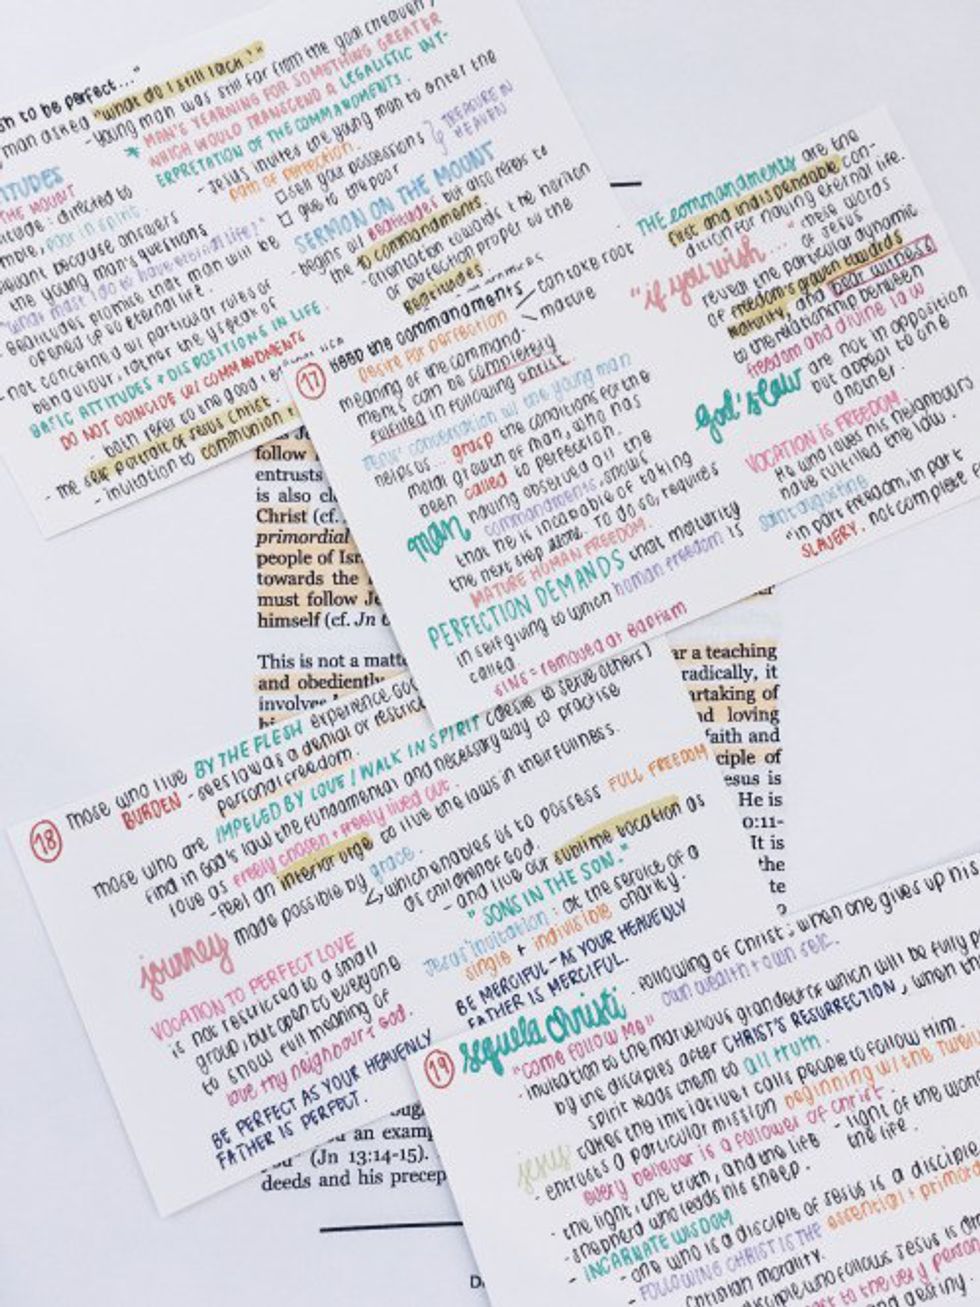 sh to be perfect..."
man asked "what do I still lack?"
- young man was still far from the goal
* MAN'S YEARNING FOR SOMETHING GREATER
WHICH WOULD TRANSCEND A LEGALISTIC INT-
ERPRETATION OF THE COMMANDMENTS.
- Jesus invites the young man to enter the
path of perfection.
□ sell your possessions
□ give to the poor
TREASURE IN
HEAVEN
ITUDES
THE MOUNT
itude: directed to
poor in spirit
because answers
the young man's questions
"what must I do to have eternal life?"
- beatitudes promise that man will be
opened up to eternal life.
- not concerned w/ particular rules of
behaviour, rather they speak of
BASIC ATTITUDES + DISPOSITIONS IN LIFE.
DO NOT COINCIDE W/ COMMANDMENTS
- both refer to the good
- the self portrait of Jesus Christ.
- invitation to communion
SERMON ON THE MOUNT
- begins w/ beatitudes but also refers to
the 10 commandments
- orientation towards the horizon
of perfection proper to the
Beatitudes
17
Keep the commandments
Desire for perfection
can take root
mature
meaning of the command-
ments can be completely
fulfilled in following Christ.
Jesus' conversation w/ the young man
helps us... grasp the conditions for the
moral growth of man, who has
been called to perfection.
man having observed all the
commandments, shows
that he is incapable of taking
the next step alone. To do so, requires
MATURE HUMAN FREEDOM.
PERFECTION DEMANDS that maturity
in self giving to which human freedom is
called.
SINS = removed at Baptism
THE commandments are the
first and indispensable con-
dition for having eternal life.
"if you wish..." these words
of Jesus
reveal the particular dynamic
of freedom's growth towards
maturity, and bear witness
to the relationship between
freedom and divine law
God's law are not in opposition
but appeal to one
another.
VOCATION IS FREEDOM
He who loves his neighbours
have fulfilled the law.
Saint augustine
"in part freedom, in part
SLAVERY. not complete
follow
entrusts
is also
Christ (cf.
primordial
people of
towards the
must follow
himself (cf. Jn
This is not a
and obediently
a teaching
radically, it
artaking of
loving
faith and
ciple of
esus is
He is
0:11-
It is
the
te
18
Those who live BY THE FLESH experience
BURDEN - sees law as a denial or
personal freedom.
Those who are IMPELED BY LOVE / WALK IN SPIRIT (desire to serve others)
find in God's law the fundamental and necessary way to practise
love as freely chosen + freely lived out.
- feel an interior urge to live the laws in their fullness.
journey made possible by grace.
which enables us to possess FULL FREEDOM
of children of God.
- and live our sublime vocation as
"SONS IN THE SON."
VOCATION TO PERFECT LOVE
is not restricted to a small
group, but open to everyone
to show full meaning of
love thy neighbour + God.
BE PERFECT AS YOUR HEAVENLY
FATHER IS PERFECT.
Jesus' invitation: at the service of a
single + indivisible charity.
BE MERCIFUL - AS YOUR HEAVENLY
FATHER IS MERCIFUL.
an
(Jn 13:14-15).
deeds and his
19
sequela Christi
- Following of Christ; when one gives up his
own wealth + own self.
"Come follow me"
- invitation to the marvellous grandeur which will be fully
by the disciples after CHRIST'S RESURRECTION, when the
spirit leads them to all truth.
Jesus takes the initiative + calls people to follow Him.
- entrusts a particular mission beginning w/ the
every believer is a follower of Christ
- the light, the truth, and the life
- light of the
the life.
- shepherd who leads his sheep.
- INCARNATE WISDOM
- one who is a disciple of Jesus is a disciple
- FOLLOWING CHRIST IS THE essential +
Christian morality.
- disciple who follows Jesus
to the very
and destiny.